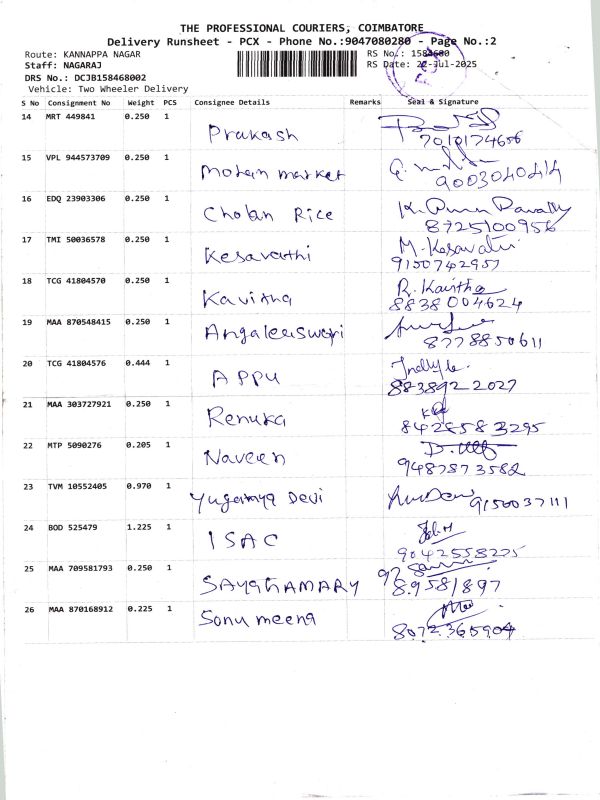 THE PROFESSIONAL COURIERS, COIMBATORE
Delivery Runsheet - PCX - Phone No.:9047080280 - Page No.:2
Route: KANNAPPA NAGAR RS No.: 1584680
Staff: NAGARAJ RS Date: 22-Jul-2025
DRS No.: DCJB158468002
Vehicle: Two Wheeler Delivery
S No Consignment No Weight PCS Consignee Details Remarks Seal & Signature
14 MRT 449841 0.250 1 Prakash
7010174656
15 VPL 944573709 0.250 1 Mohan market
9003040414
16 EDQ 23903306 0.250 1 Cholan Rice
8725100956
17 TMI 50036578 0.250 1 Kesavathi M. Kesavathi
9150742957
18 TCG 41804570 0.250 1 Kavitha R. Kavitha
8838004624
19 MAA 870548415 0.250 1 Angaleeswari
8778850611
20 TCG 41804576 0.444 1 APPU
8838922027
21 MAA 303727921 0.250 1 Renuka
8428583295
22 MTP 5090276 0.205 1 Naveen
9487873582
23 TVM 10552405 0.970 1 Yugamya Devi 9150037111
24 BOD 525479 1.225 1 ISAC
9042558225
25 MAA 709581793 0.250 1 SAYAHAMARY
8.9581897
26 MAA 870168912 0.225 1 Sonu meena
8072365904